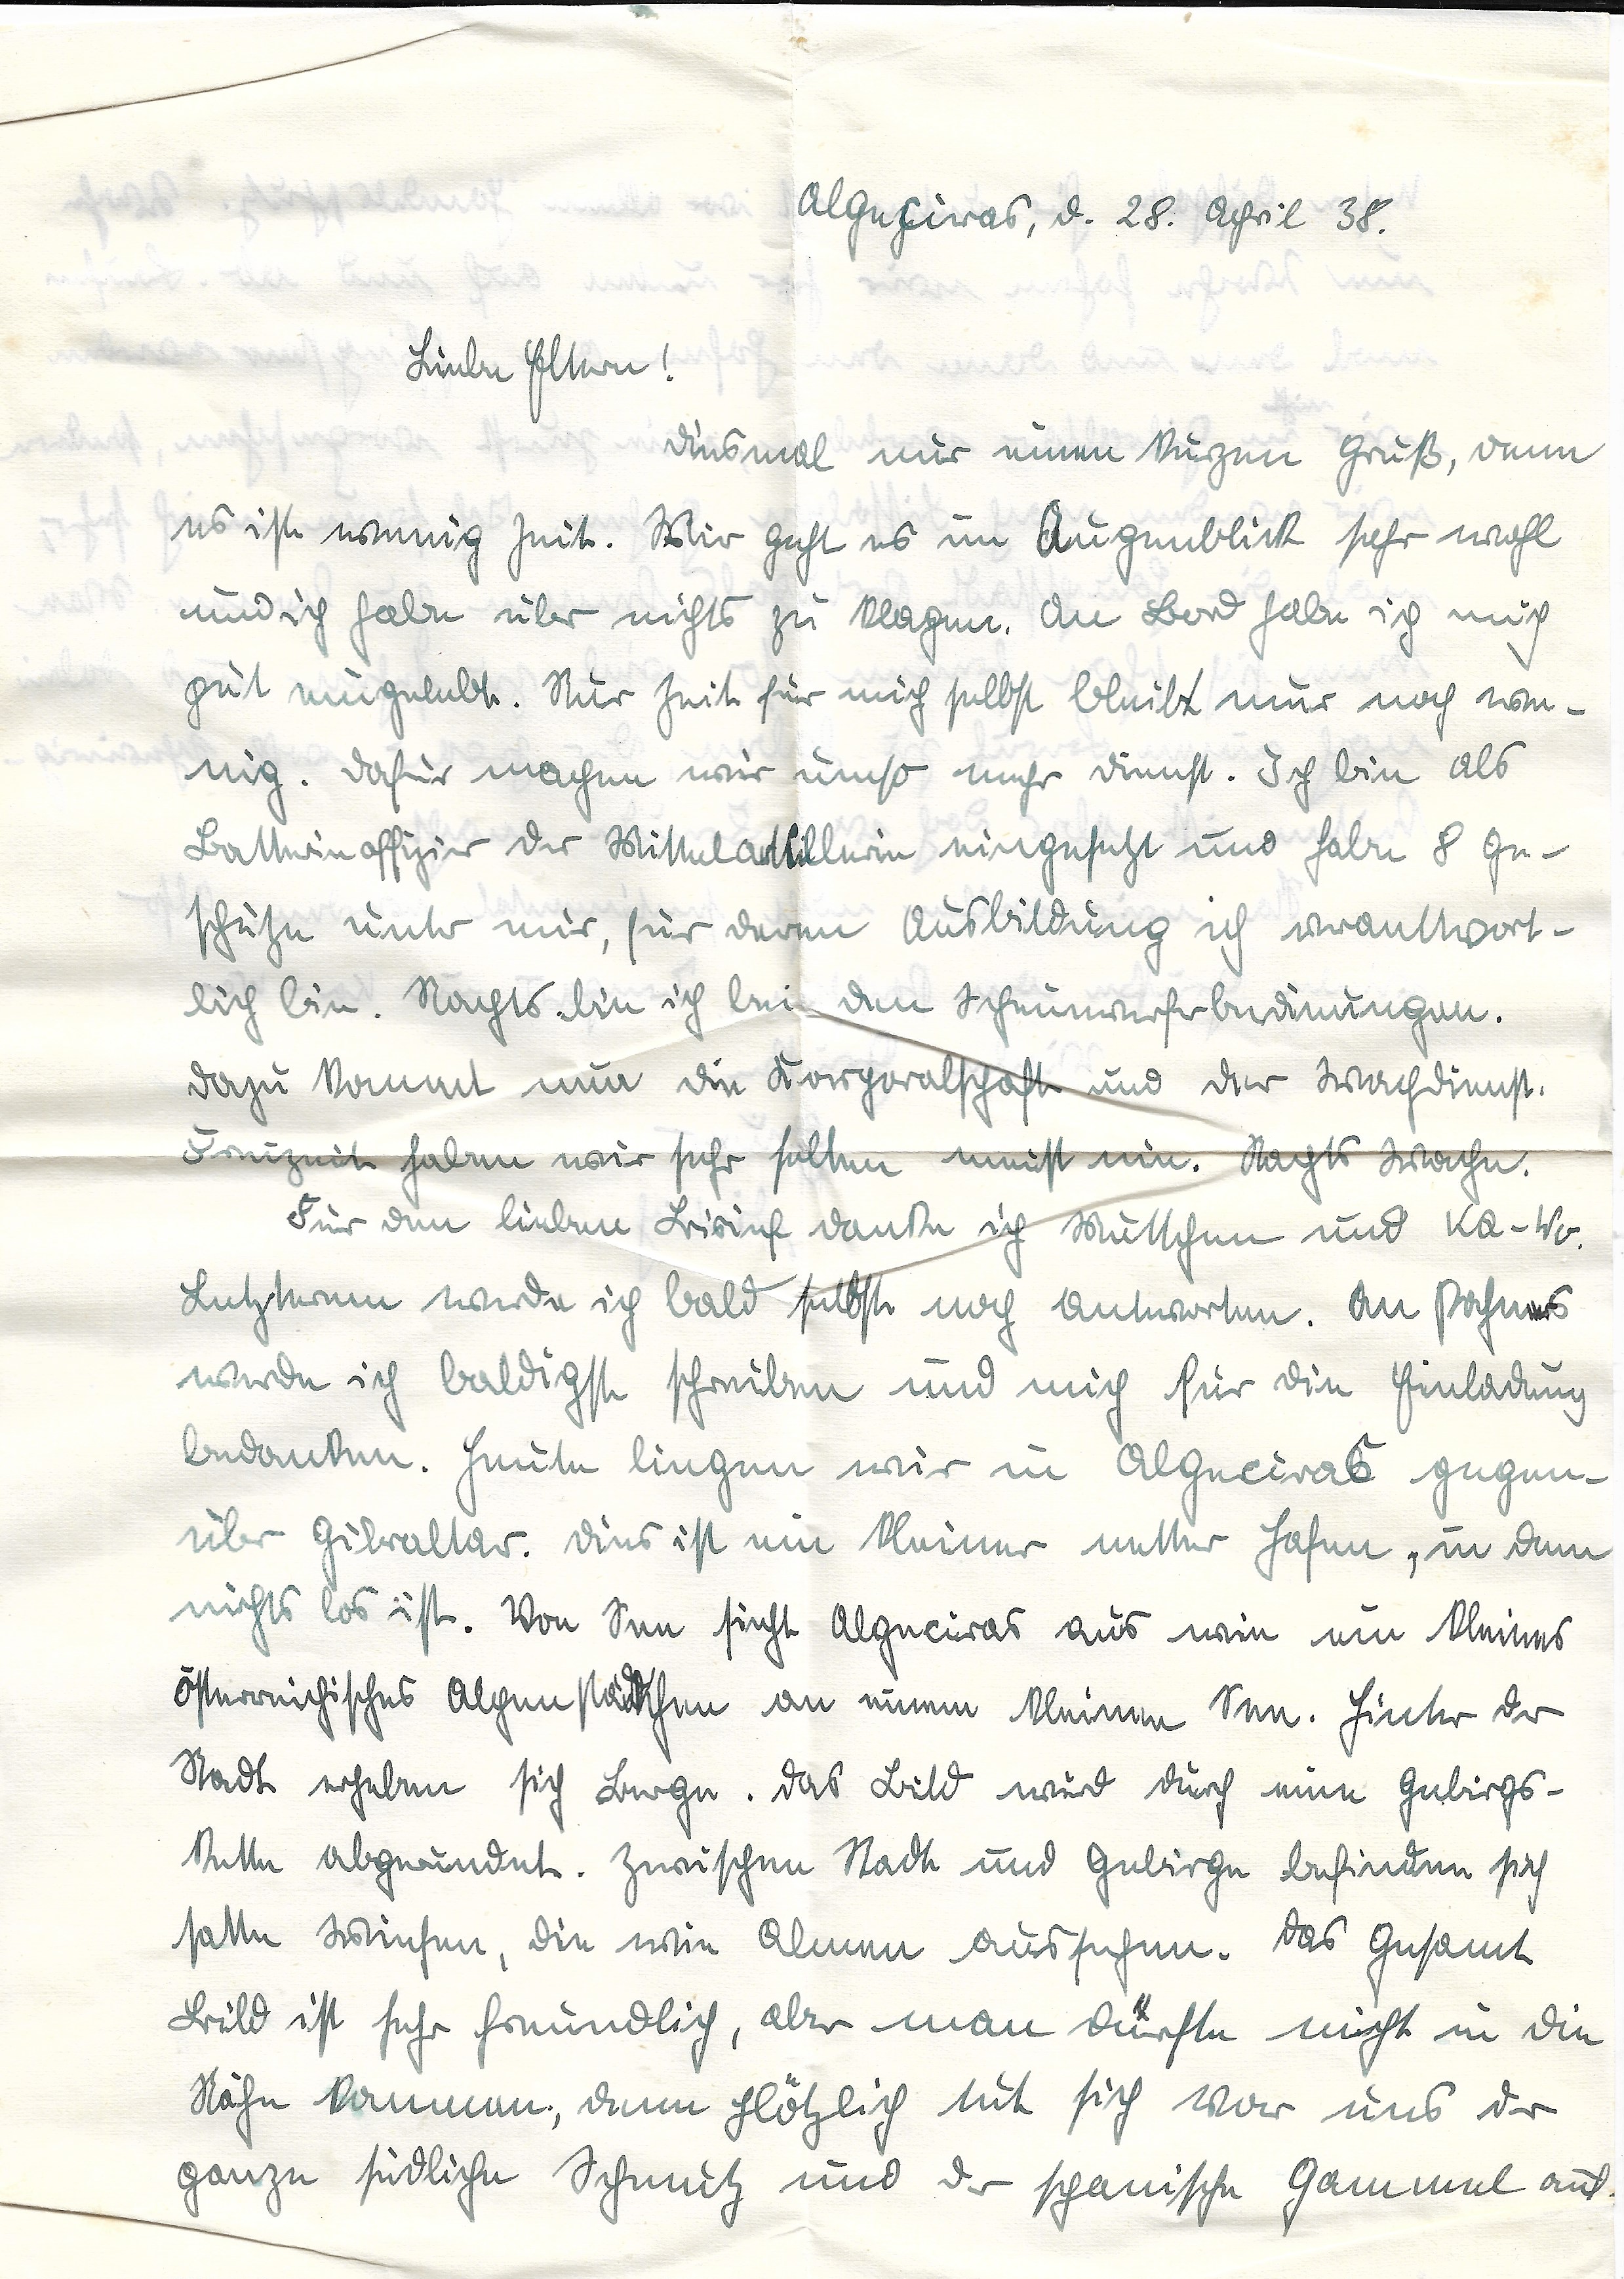 Algeciras, d. 28. April 38.
Liebe Eltern!
Diesmal nur einen kurzen Gruß, denn
es ist wenig Zeit. Mir geht es im Augenblick sehr wohl
und ich habe über nichts zu klagen. An Bord habe ich mich
gut eingelebt. Nur Zeit für mich selbst bleibt nur noch we-
nig. Dafür machen wir umso mehr Dienst. Ich bin als
Batterieoffizier der Mittelartillerie eingesetzt und habe 8 Ge-
schütze unter mir, für deren Ausbildung ich verantwort-
lich bin. Nachts bin ich bei den Scheinwerferbedienungen.
Dazu kommt nun die Korporalschaft und der Wachdienst.
Freizeit haben wir sehr selten meist nie. Nachts Wache.
Für den lieben Brief danke ich Muttchen und Ka-Wo.
Letzterem werde ich bald selbst noch antworten. An
werde ich baldigst schreiben und mich für die Einladung
bedanken. Heute liegen wir in Algeciras gegen-
über Gibraltar. Dies ist ein kleiner netter Hafen, in dem
nichts los ist. Von See sieht Algeciras aus wie ein kleines
österreichisches Alpenstädtchen an einem kleinen See. Hinter der
Stadt erheben sich Berge. Das Bild wird durch eine Gebirgs-
kette abgerundet. Zwischen Stadt und Gebirge befinden sich
satte Wiesen, die wie Almen aussehen. Das Gesamt
Bild ist sehr freundlich, aber man dürfte nicht in die
Nähe kommen, denn plötzlich tut sich vor uns der
ganze südliche Schmutz und der spanische Gammel auf.